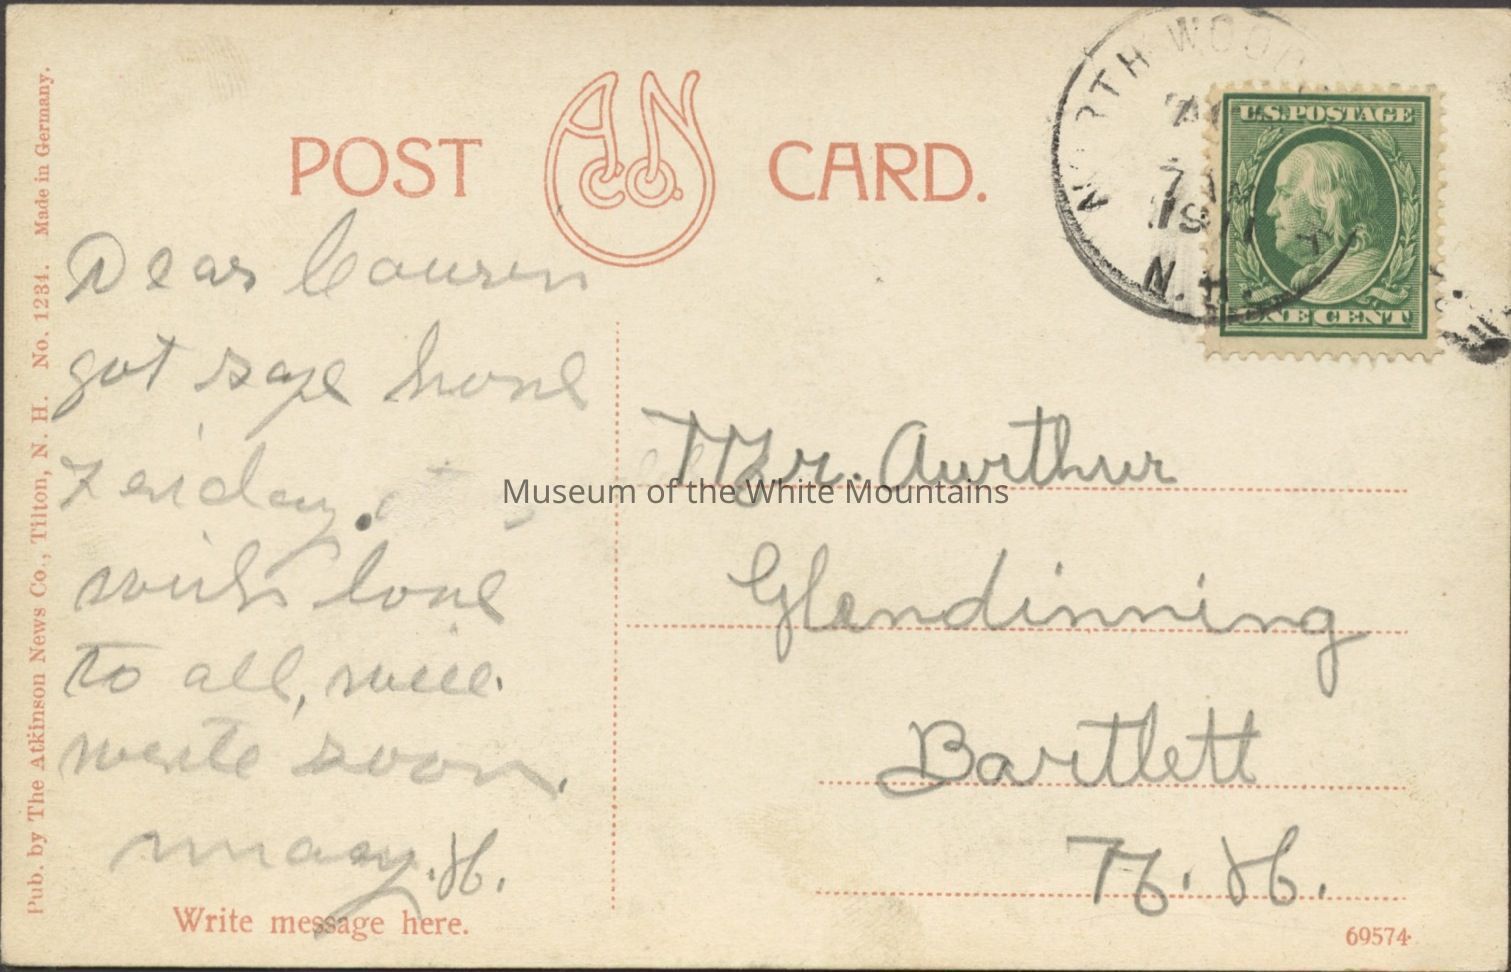 POST CARD.
A N Co.
NORTH WOOD
7 AM
1911
N.H.
U.S. POSTAGE
ONE CENT
Dear Cousin
got safe home
Friday.
with love
to all, will
write soon.
may. H.
Write message here.
Mr. Aurthur
Glendinning
Bartlett
N. H.
69574
Pub. by The Atkinson News Co., Tilton, N. H. No. 1234. Made in Germany.
Museum of the White Mountains